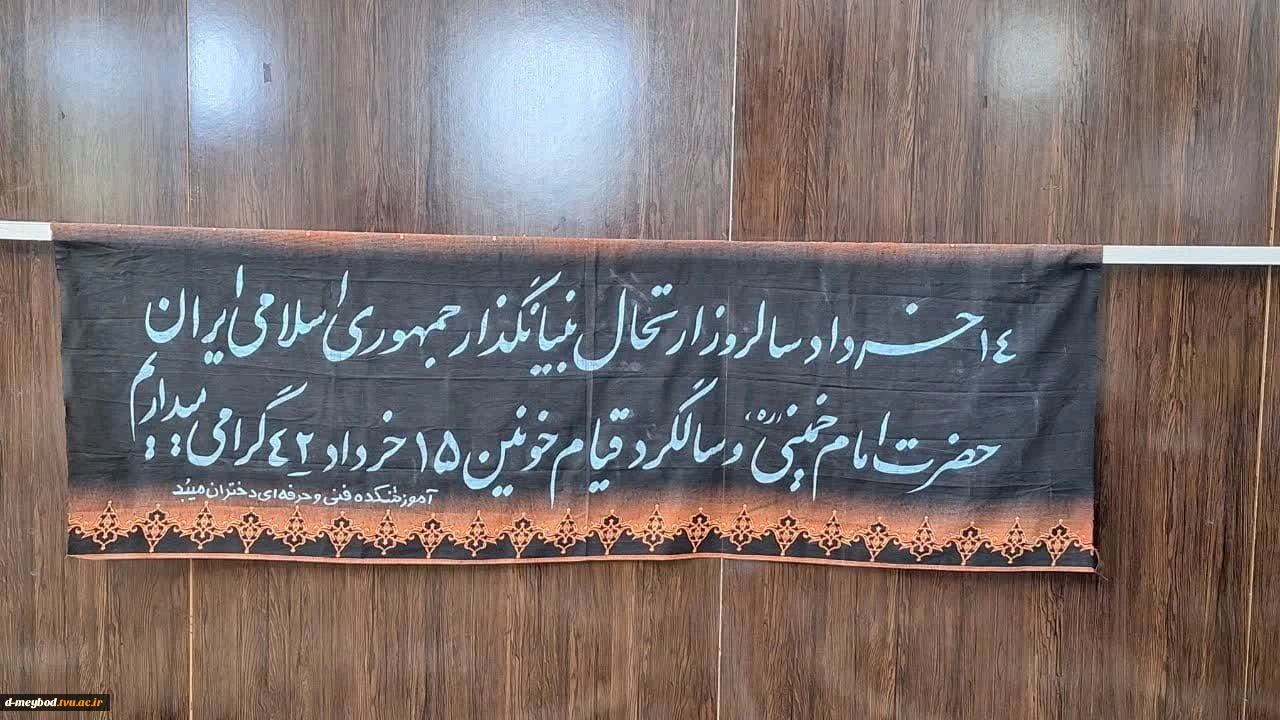 ۱۴ خرداد سالروز ارتحال بنیانگذار جمهوری اسلامی ایران
حضرت امام خمینی (ره) و سالگرد قیام خونین ۱۵ خرداد ۴۲ گرامی میداریم
آموزشکده فنی و حرفه ای دختران میبُد
d-meybod.tvu.ac.ir